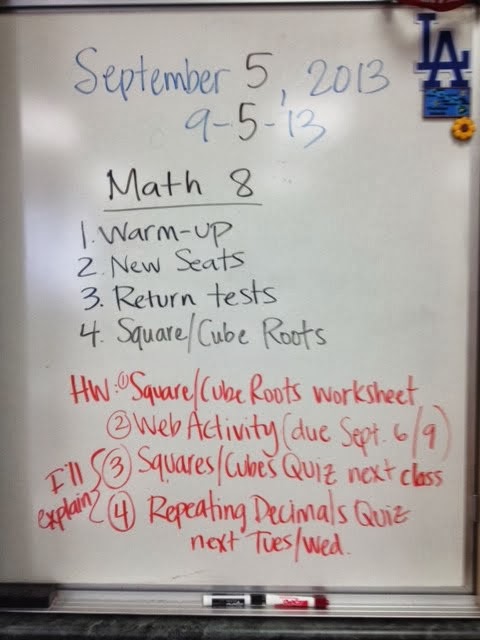 September 5, 2013
9-5-13
LA
Math 8
1. Warm-up
2. New Seats
3. Return tests
4. Square/Cube Roots
HW: ① Square/Cube Roots worksheet
② Web Activity (due Sept. 6/9)
I'll explain { ③ Squares/Cubes Quiz next class
④ Repeating Decimals Quiz
next Tues/Wed.